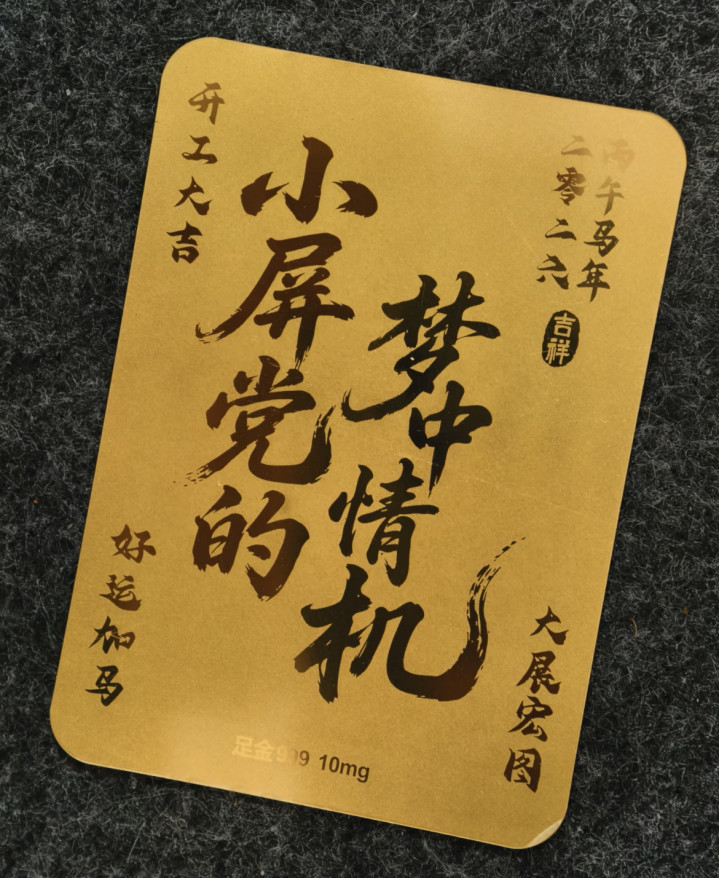 开工大吉
小屏党的
梦中情机
丙午马年
二零二六
吉祥
好运加马
大展宏图
足金999 10mg